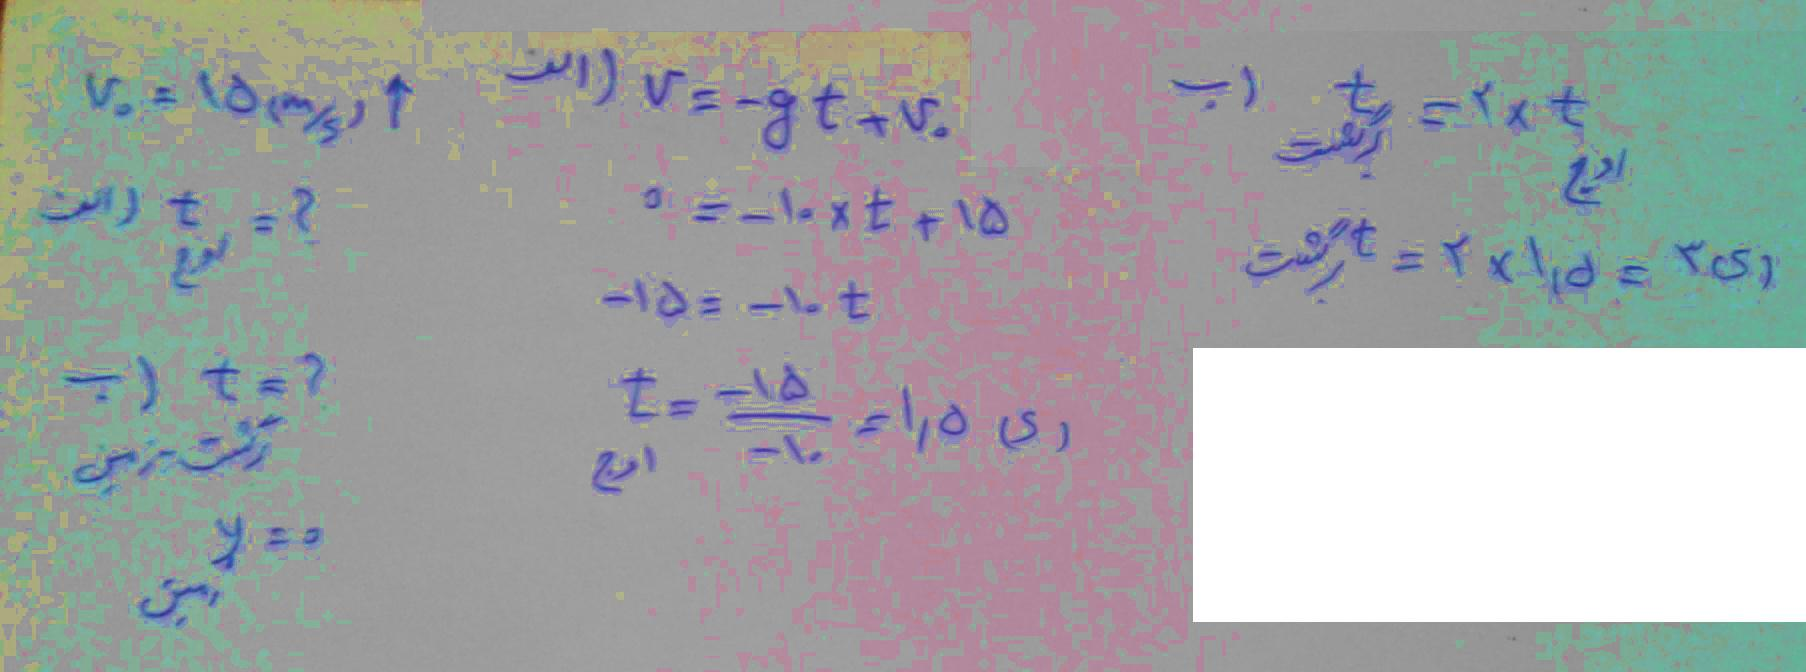 v₀ = ۱۵ (m/s) ↑
الف) t اوج = ?
ب) t = ?
برگشت زمین
y = ۰
زمین
الف) v = -gt + v₀
۰ = -۱۰ × t + ۱۵
-۱۵ = -۱۰ t
t اوج = -۱۵ / -۱۰ = ۱,۵ (s)
ب) t برگشت = ۲ × t اوج
t برگشت = ۲ × ۱,۵ = ۳ (s)